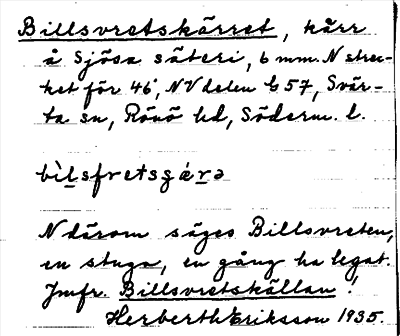 Billsvretskärret, kärr
å Sjösa säteri, 6 mm. N strec-
ket för 46', NV delen E57, Svär-
ta sn, Rönö hd, Söderm. l.
bìlsfretsçǽrə
N därom säges Billsvreten,
en stuga, en gång ha legat.
Jmfr. Billsvretskällan!
Herberth Eriksson 1935.